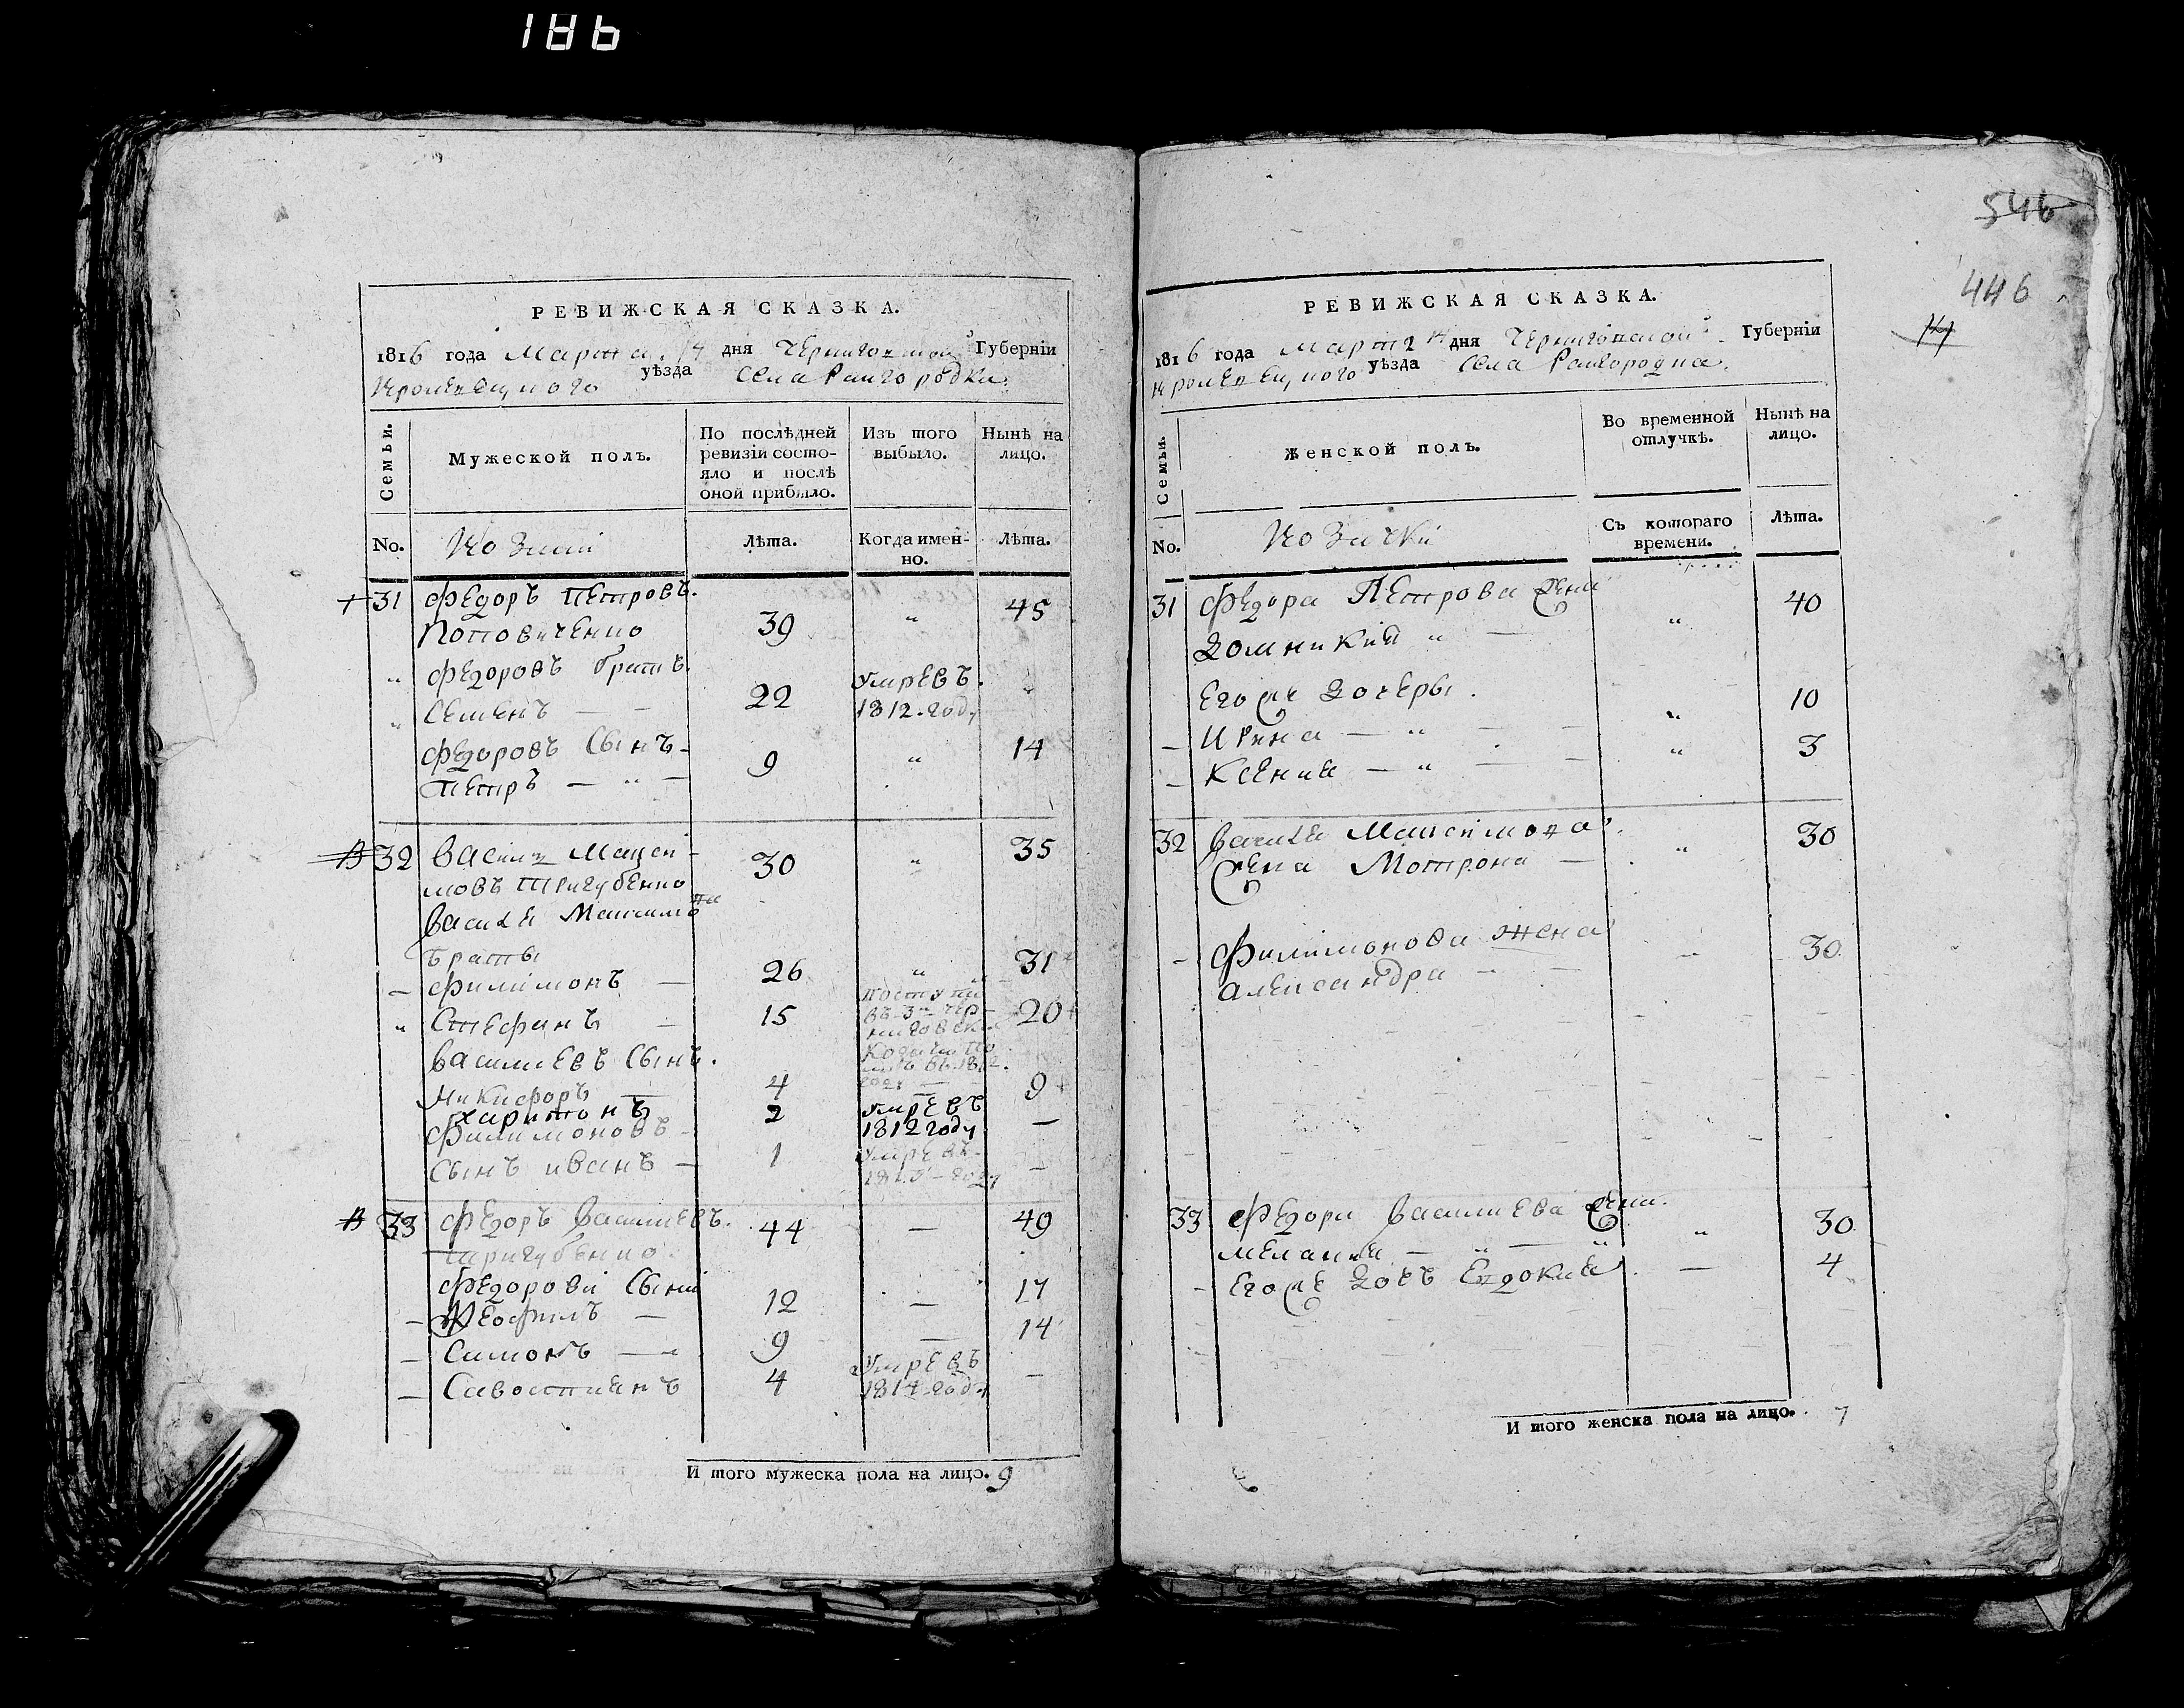 186
546
446
РЕВИЖСКАЯ СКАЗКА.
1816 года Марта 14 дня Черниговской Губерніи
Кролевецкого уѣзда Села Райгородка.
Семьи.
Мужеской полъ.
По послѣдней ревизіи состо-
яло и послѣ
оной прибыло.
Изъ того
выбыло.
Нынѣ на
лицо.
No. Козаки Лѣта. Когда имен-
но. Лѣта.
31 Федоръ Петровъ.
Поповиченко 39 " 45
" Федоровъ братъ.
" Семенъ — — 22 Умревъ.
1812. году "
Федоровъ Сынъ-
Петръ — " — 9 " 14
В 32 Василь Макси-
мовъ Тригубенко 30 " 35
Василя Максимова
браты
— Филимонъ — 26 " 31
" Стефанъ — 15 поступи
въ 3й Чер-
ниговски
20
Василиевъ Сынъ.
Никифоръ — 4 9
Харитонъ 2 Умревъ
1812 году —
Филимоновъ
Сынъ иванъ — 1 Умревъ —
В 33 Федоръ Василиевъ.
Тригубенко. 44 — 49
Федорови Сыни
— Феофилъ — 12 — 17
— Симонъ — 9 — 14
— Савостиянъ 4 Умревъ
1814 году —
И того мужеска пола на лицо. 9
РЕВИЖСКАЯ СКАЗКА.
1816 года Марта 14 дня Черниговской Губерніи
Кролевецкого уѣзда Села Райгородка.
Семьи.
Женской полъ.
Во временной
отлучкѣ.
Нынѣ на
лицо.
No. Козачки Съ котораго
времени. Лѣта.
31 Федора Петрова жена
Домникия " — " 40
Его же дочеры.
— Ирина — " — " 10
— Ксения — " — " 3
32 Василя Максимова
жена Мотрона — " 30
— Филимонова жена
александра — — 30
33 Федора Василиева жена.
Мелания — " — " " 30
— Его же дочь Евдокия — 4
И того женска пола на лицо. 7